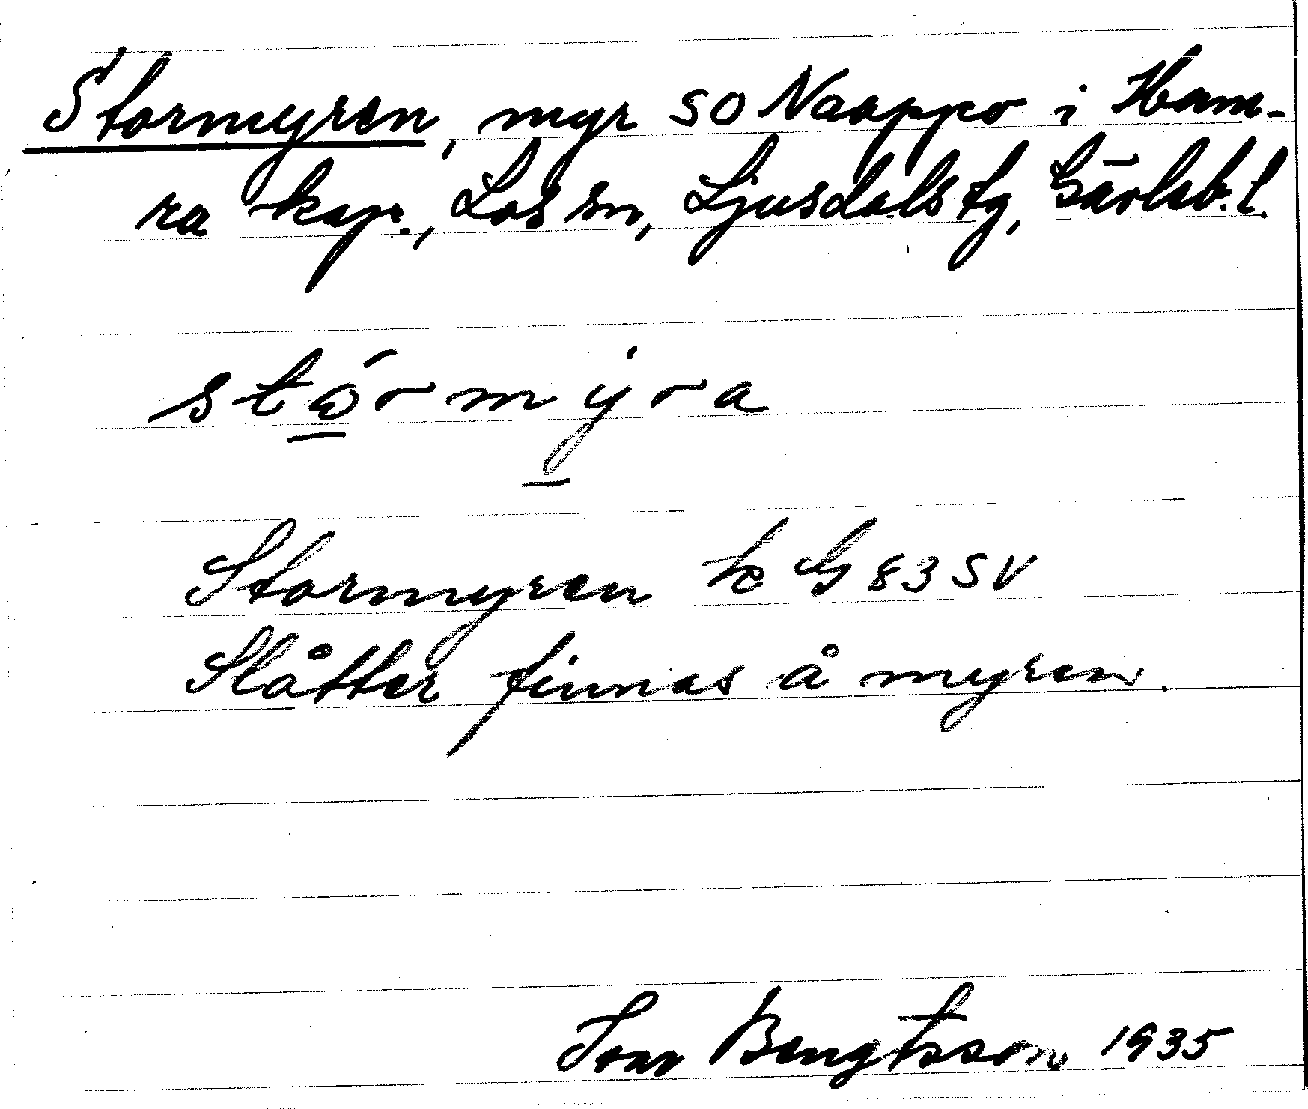 Stormyren, myr SO Naappo i Ham-
ra kap., Los sn, Ljusdals tg, Gävleb. l.
stɷ́rmẏra
Stormyren k G 83 SV
Slåtter finnas å myren.
Ivar Bengtsson 1935